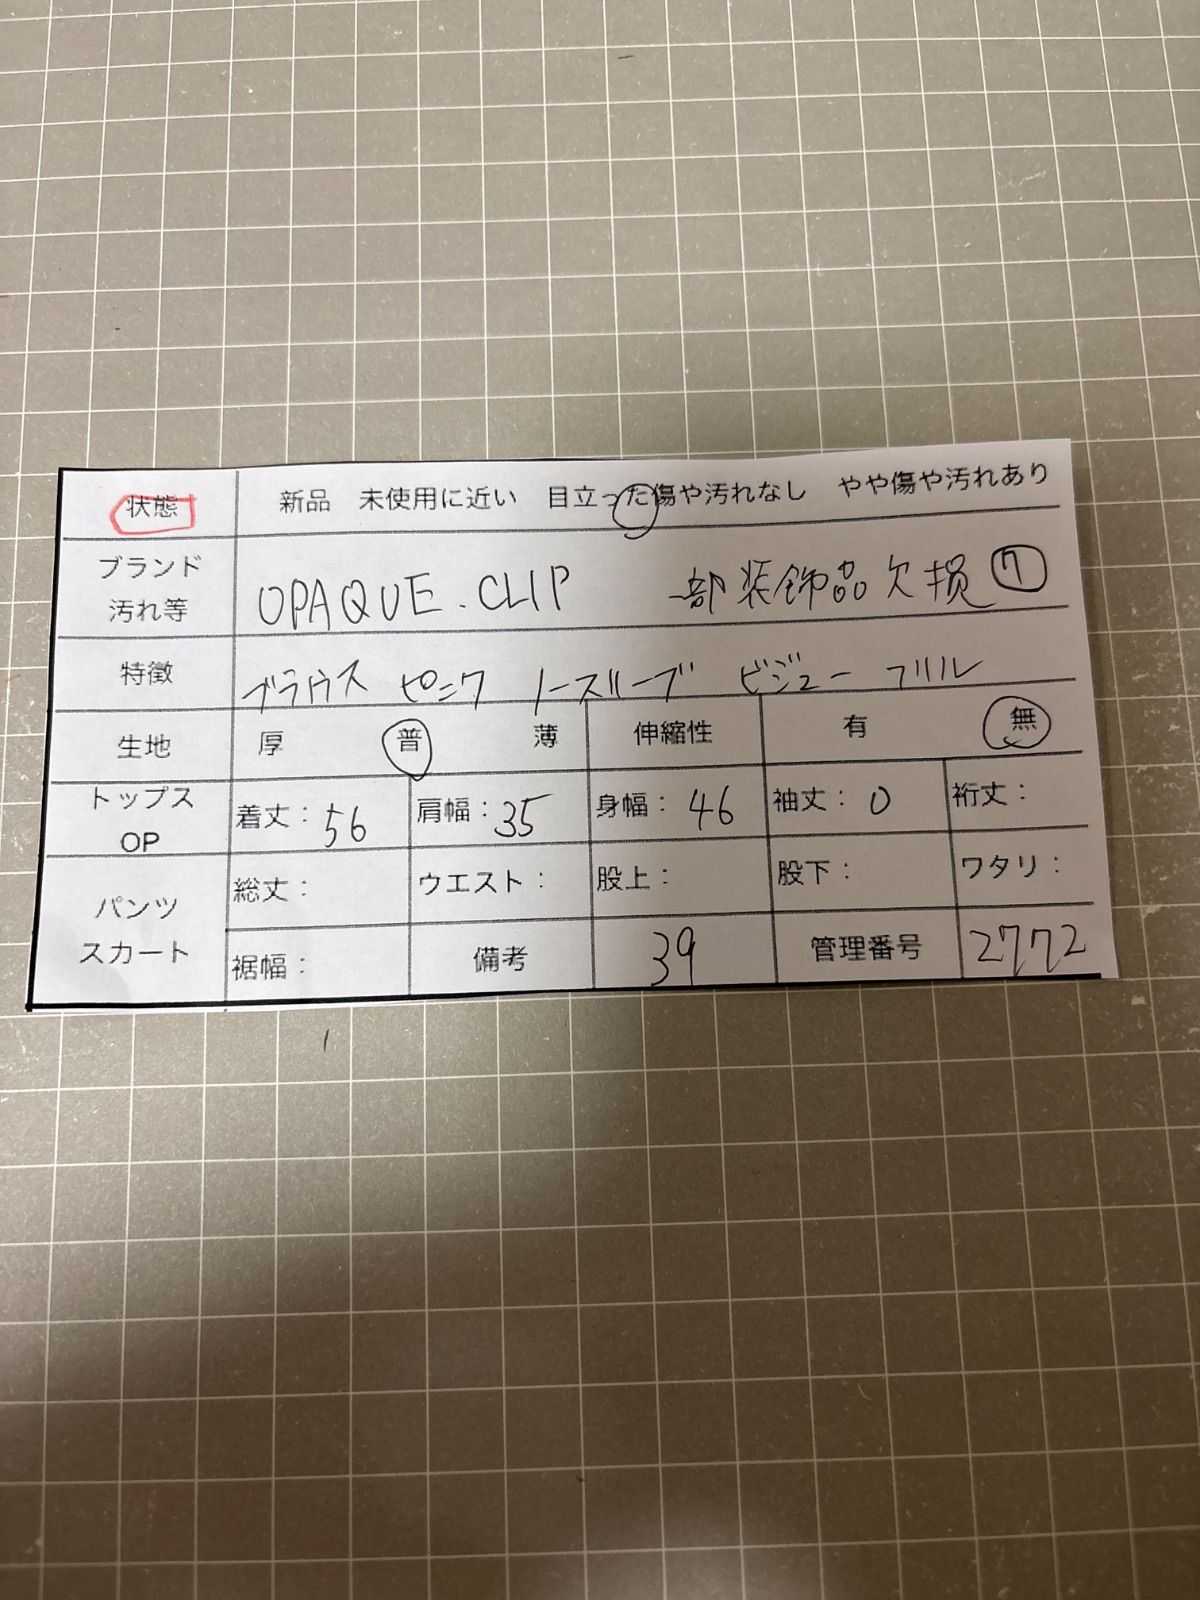 状態 新品 未使用に近い 目立った傷や汚れなし やや傷や汚れあり
ブランド
汚れ等 OPAQUE.CLIP 一部装飾品欠損 ⑦
特徴 ブラウス ピンク ノースリーブ ビジュー フリル
生地 厚 普 薄 伸縮性 有 無
トップス
OP 着丈：56 肩幅：35 身幅：46 袖丈：0 裄丈：
パンツ
スカート 総丈： ウエスト： 股上： 股下： ワタリ：
裾幅： 備考 39 管理番号 2772